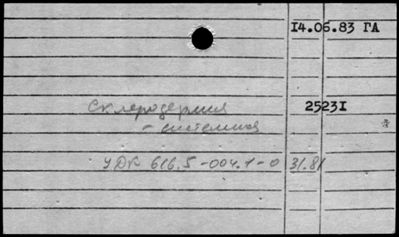 14.06.83 ГА
Склеродермия 25231
- системная
УДК 616.5-004.1-0 31.81